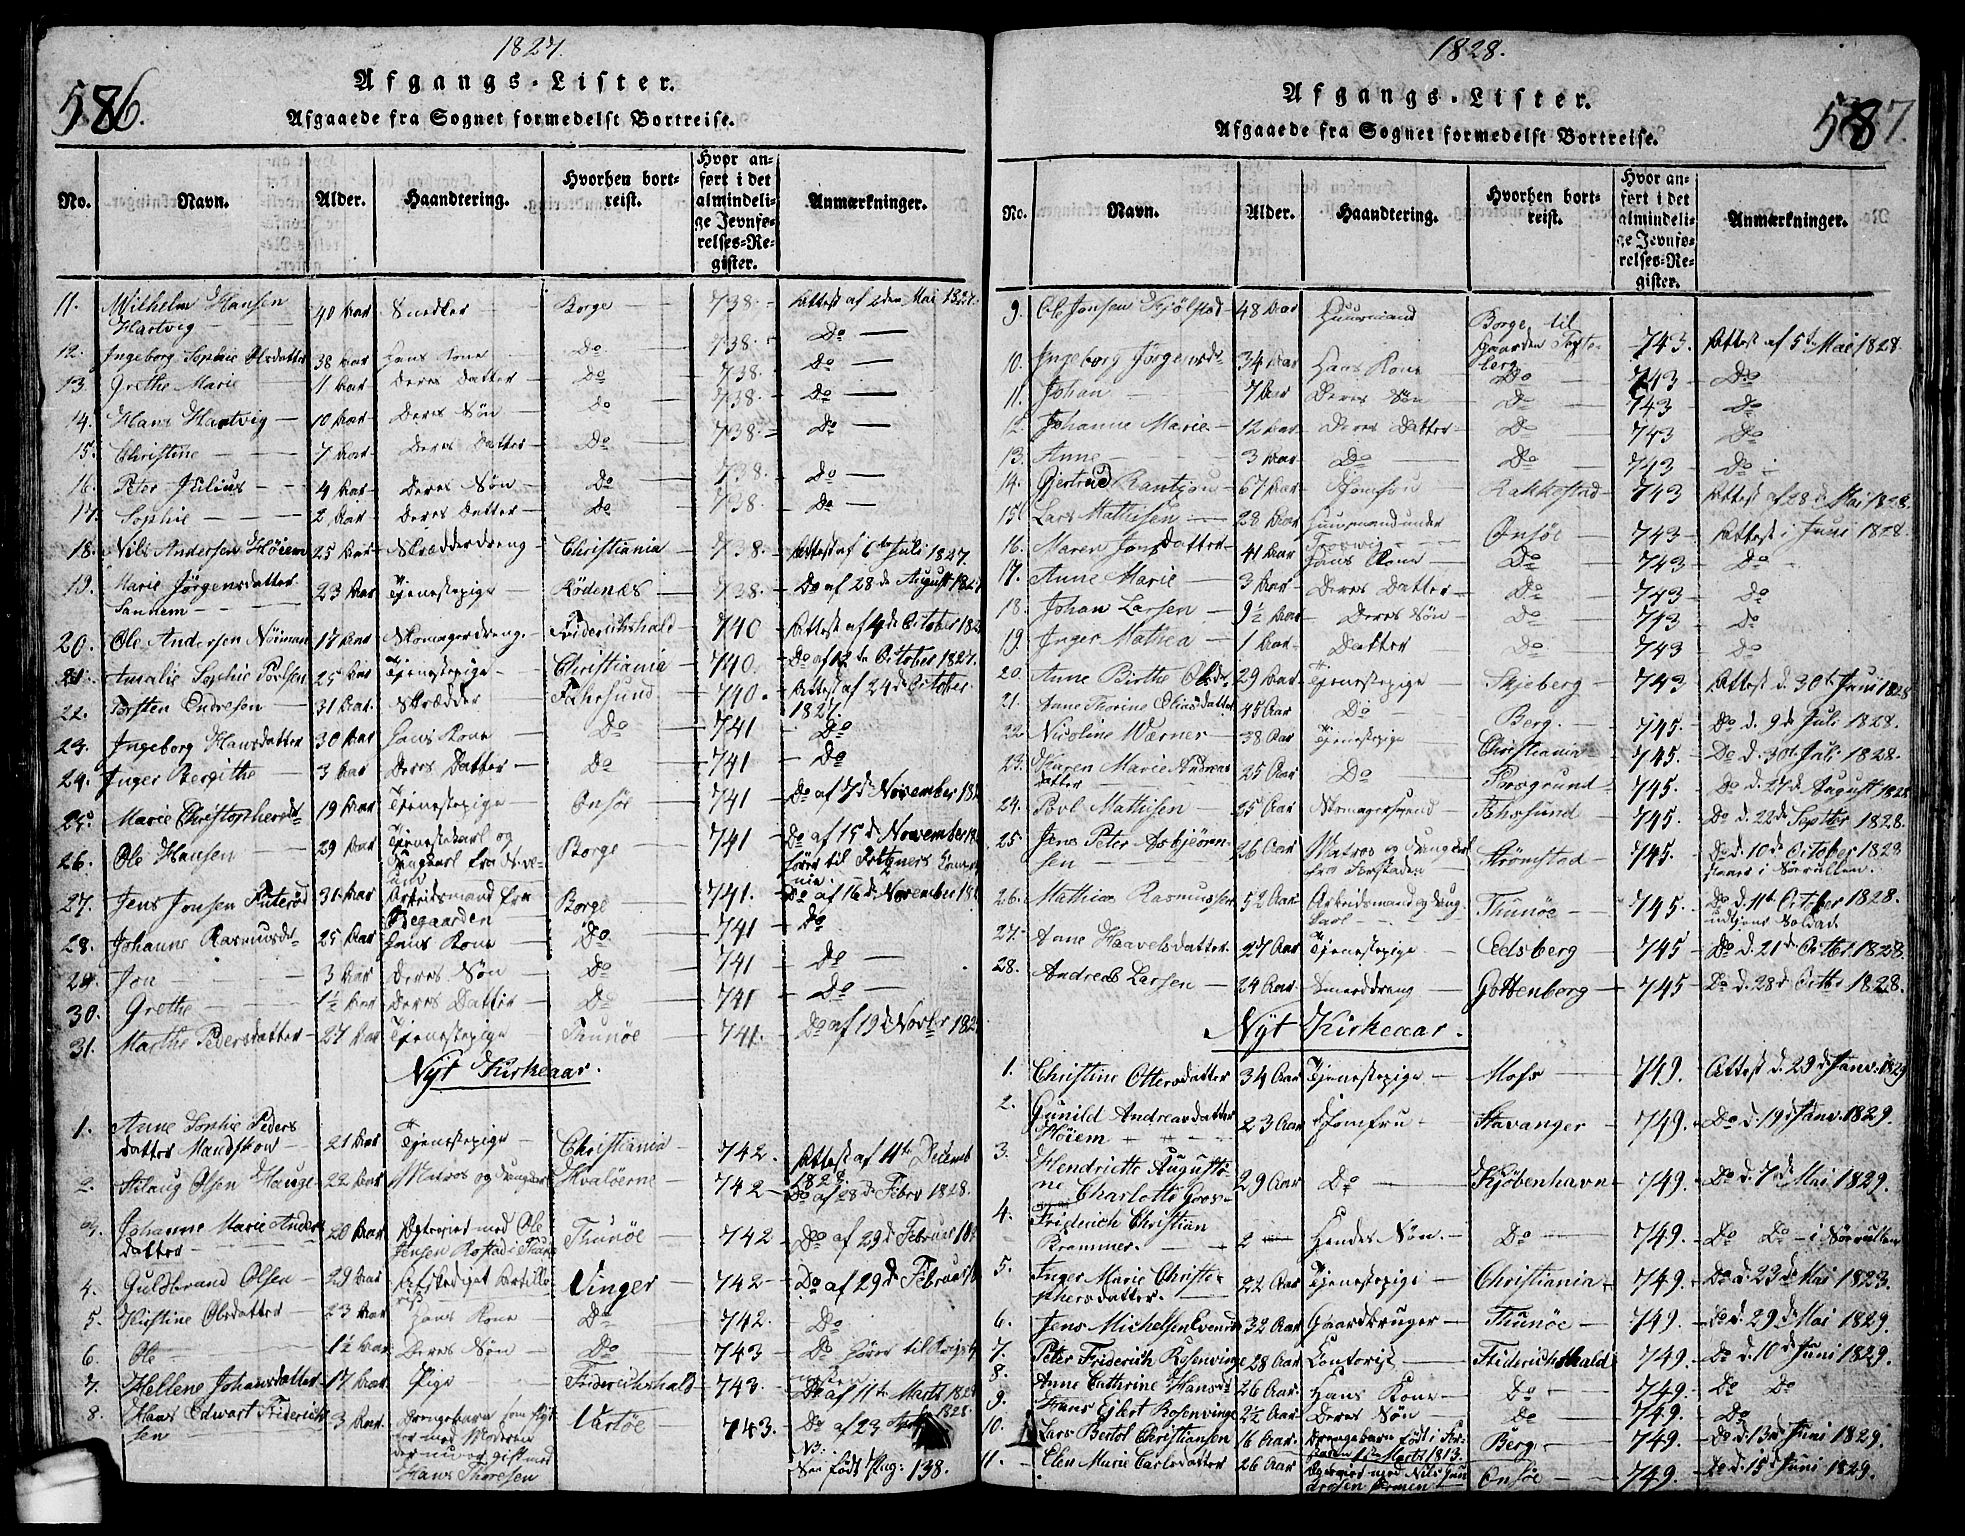 1827.
586.
Afgangs-Lister.
Afgaaede fra Sognet formedelst Bortreise.
No. Navn. Alder. Haandtering. Hvorhen bortreist. Hvor anført i det almindelige Jevnførelses-Register. Anmærkninger.
11. Wilhelm Hansen Hartvig 40 Aar Snedker Borge 738. Attest af den Mai 1827.
12. Ingeborg Sophie Olsdatter 38 Aar Hans Kone Do 738. Do
13. Grethe Marie 11 Aar Deres Datter Do 738. Do
14. Hans Hartvig 10 Aar Deres Søn Do 738. Do
15. Christine 7 Aar Deres Datter Do 738. Do
16. Peter Julius 4 Aar Deres Søn Do 738. Do
17. Sophie 2 Aar Deres Datter Do 738. Do
18. Nils Andersen Høiem 25 Aar Skrædderdreng Christiania 738. Attest af 6te Juli 1827.
19. Marie Jørgensdatter Sannem 23 Aar Tjenestepige Rödenæs 738. Do af 28d August
20. Ole Andersen 17 Aar Skomagerdreng Friderichshald 740 Attest af 4d October
21. Amalie Sophie Poulsen 25 Aar Tjenestepige Christiania 740. Do af 12te October 1827.
22. Torsten Endresen 31 Aar Skrædder 740. Attest af 24d October 1827
23. Ingeborg Hansdatter 30 Aar Hans Kone Do 741 Do
24. Inger Bergithe 3 Aar Deres Datter Do 741 Do
25. Marie Christophersd 19 Aar Tjenestepige Onsöe 741 Do af 7d November
26. Ole Hansen 29 Aar Tjenestekarl og Borge 741 Do af 15d November hører til
27. Jens Jonsen 31 Aar Arbeidsmand fra Borge 741. Do af 16d November
28. Johanne Rasmusd 25 Aar Hans Kone Do 741 Do
29. Jon 3 Aar Deres Søn Do 741 Do
30. Grethe 1½ Aar Deres Datter Do 741 Do
31. Marthe Pedersdatter 27 Aar Tjenestepige Thunöe 741. Do af 19d Novbr
Nyt Kirkeaar.
1. Anne Sophie Pedersdatter 21 Aar Tjenestepige Christiania 742. Attest af 11te
2. Olsen Hauge 22 Aar Matros og Hvalöerne 742 Do af 28d Febr 1828.
3. Johanne Marie Andersdatter 20 Aar med Ole Jensen Thunöe 742 Do af 29d Februar
4. Guldbrand Olsen 29 Aar Vinger 742 Do af 29d Februar
5. Kistine Olsdatter 23 Aar Hans Kone Do 742. Do
6. Ole 1½ Aar Deres Søn Do 743 Do hører til
7. Hellene Johansdatter 17 Aar Pige Friderichshald 743. Do af 11te Marts
8. Hans Edwart Friderichsen 3 Aar Drengebarn som med Moderen der nu er gift med Hans Thoresen 743. Do af 23 1828. NB. født Pag: 138.
1828.
587.
Afgangs-Lister.
Afgaaede fra Sognet formedelst Bortreise.
No. Navn. Alder. Haandtering. Hvorhen bortreist. Hvor anført i det almindelige Jevnførelses-Register. Anmærkninger.
9. Ole Jonsen 48 Aar Huusmand Borge til Gaarden 743. Attest af 5te Mai 1828.
10. Ingeborg Jörgensd 34 Aar Hans Kone Do 743 Do
11. Johan 7 Aar Deres Søn Do 743 Do
12. Johanne Marie 12 Aar Deres Datter Do 743 Do
13. Anne 3 Aar Do Do 743 Do
14. Giertrud 67 Aar Jomfru Rakkestad 743 Attest af 28d Mai 1828.
15. Lars Mathisen 28 Aar Huusmand under Onsöe 743 Attest i Juni 1828.
16. Maren Jonsdatter 41 Aar Hans Kone Do 743 Do
17. Anne Marie 3 Aar Deres Datter Do 743 Do
18. Johan Larsen 9½ Aar Deres Søn Do 743 Do
19. Inger Mathea 1 Aar Datter Do 743 Do
20. Anne Birthe Olsd 29 Aar Tjenestepige Skjeberg 743 Attest d. 30te Juni 1828
21. Anne Thorine Eliasdatter 45 Aar Do Berg. 745. Do d. 9de Juli 1828.
22. Nicoline Wærner 38 Aar Tjenestepige Christiania 745. Do d. 30te Juli 1828.
23. Karen Marie Andreasdatter 25 Aar Do Porsgrund 745. Do d. 27d August 1828
24. Povl Mathisen 25 Aar Skomagersvend 745. Do d. 22de Septbr 1828.
25. Jens Peter Asbjørnsen 26 Aar Matros og fra Forstaden Strömstad 745. Do d. 10d October 1828
26. Mathias Rasmussen 52 Aar Arbeidsmand og Thunöe 745. Do d. 11te October 1828. udtjent Soldat
27. Anne Haavelsdatter 27 Aar Tjenestepige Eidsberg 745 Do d. 21d Octbr. 1828.
28. Andreas Larsen 24 Aar Smeddreng Gottenborg 745 Do d. 28d Octbr 1828.
Nyt Kirkeaar.
1. Christine Ottersdatter 34 Aar Tjenestepige Moss 749. Attest d. 29d Janv. 1829
2. Gunild Andreasdatter Høiem 23 Aar Jomfru Stavanger 749. Do d. 19d Janv. 1829.
3. Hendriette Augustine Charlotte 29 Aar Do Kjöbenhavn 749. Do d. 7de Mai 1829.
4. Friderich Christian Brammer. 2 Hendes Søn Do 749. Do Do
5. Inger Marie Christophersdatter. 22 Aar Tjenestepige Christiania 749. Do d. 23d Mai
6. Jens Michelsen 32 Aar Gaardbruger Thunöe 749. Do d. 29d Mai 1829.
7. Peter Friderich Rosenvinge 28 Aar Contorist Friderichshald 749. Do d. 10d Juni 1829.
8. Anne Cathrine Hansd 26 Aar Hans Kone Do 749. Do Do
9. Hans Ejlert Rosenvinge 2½ Aar Deres Søn Do 749. Do
10. Lars Bertol Christiansen 16 Aar Drengebarn født i Marts 1813. Berg 749. Do d. 13d Juni 1829.
11. Elen Marie Carlsdatter 26 Aar med Nils Onsöe 749. Do d. 15d Juni 1829.